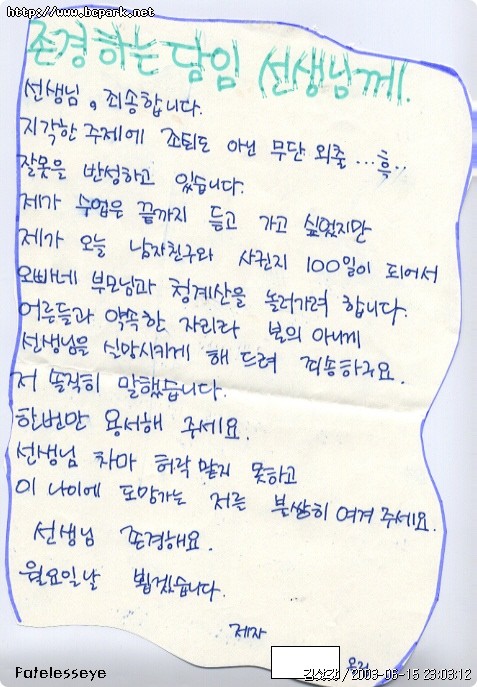 http://www.bcpark.net
존경하는 담임 선생님께.
선생님, 죄송합니다.
지각한 주제에 조퇴도 아닌 무단 외출...흑..
잘못을 반성하고 있습니다.
제가 수업은 끝까지 듣고 가고 싶었지만
제가 오늘 남자친구와 사귄지 100일이 되어서
오빠네 부모님과 청계산을 놀러가려 합니다.
어른들과 약속한 자리라 본의 아니게
선생님을 실망시키게 해 드려 죄송하구요.
저 솔직히 말했습니다.
한번만 용서해 주세요.
선생님 차마 허락 맡지 못하고
이 나이에 도망가는 저를 불쌍히 여겨 주세요.
선생님 존경해요.
월요일날 뵙겠습니다.
제자
올림
Fatelesseye
/ 2003-06-15 23:03:12